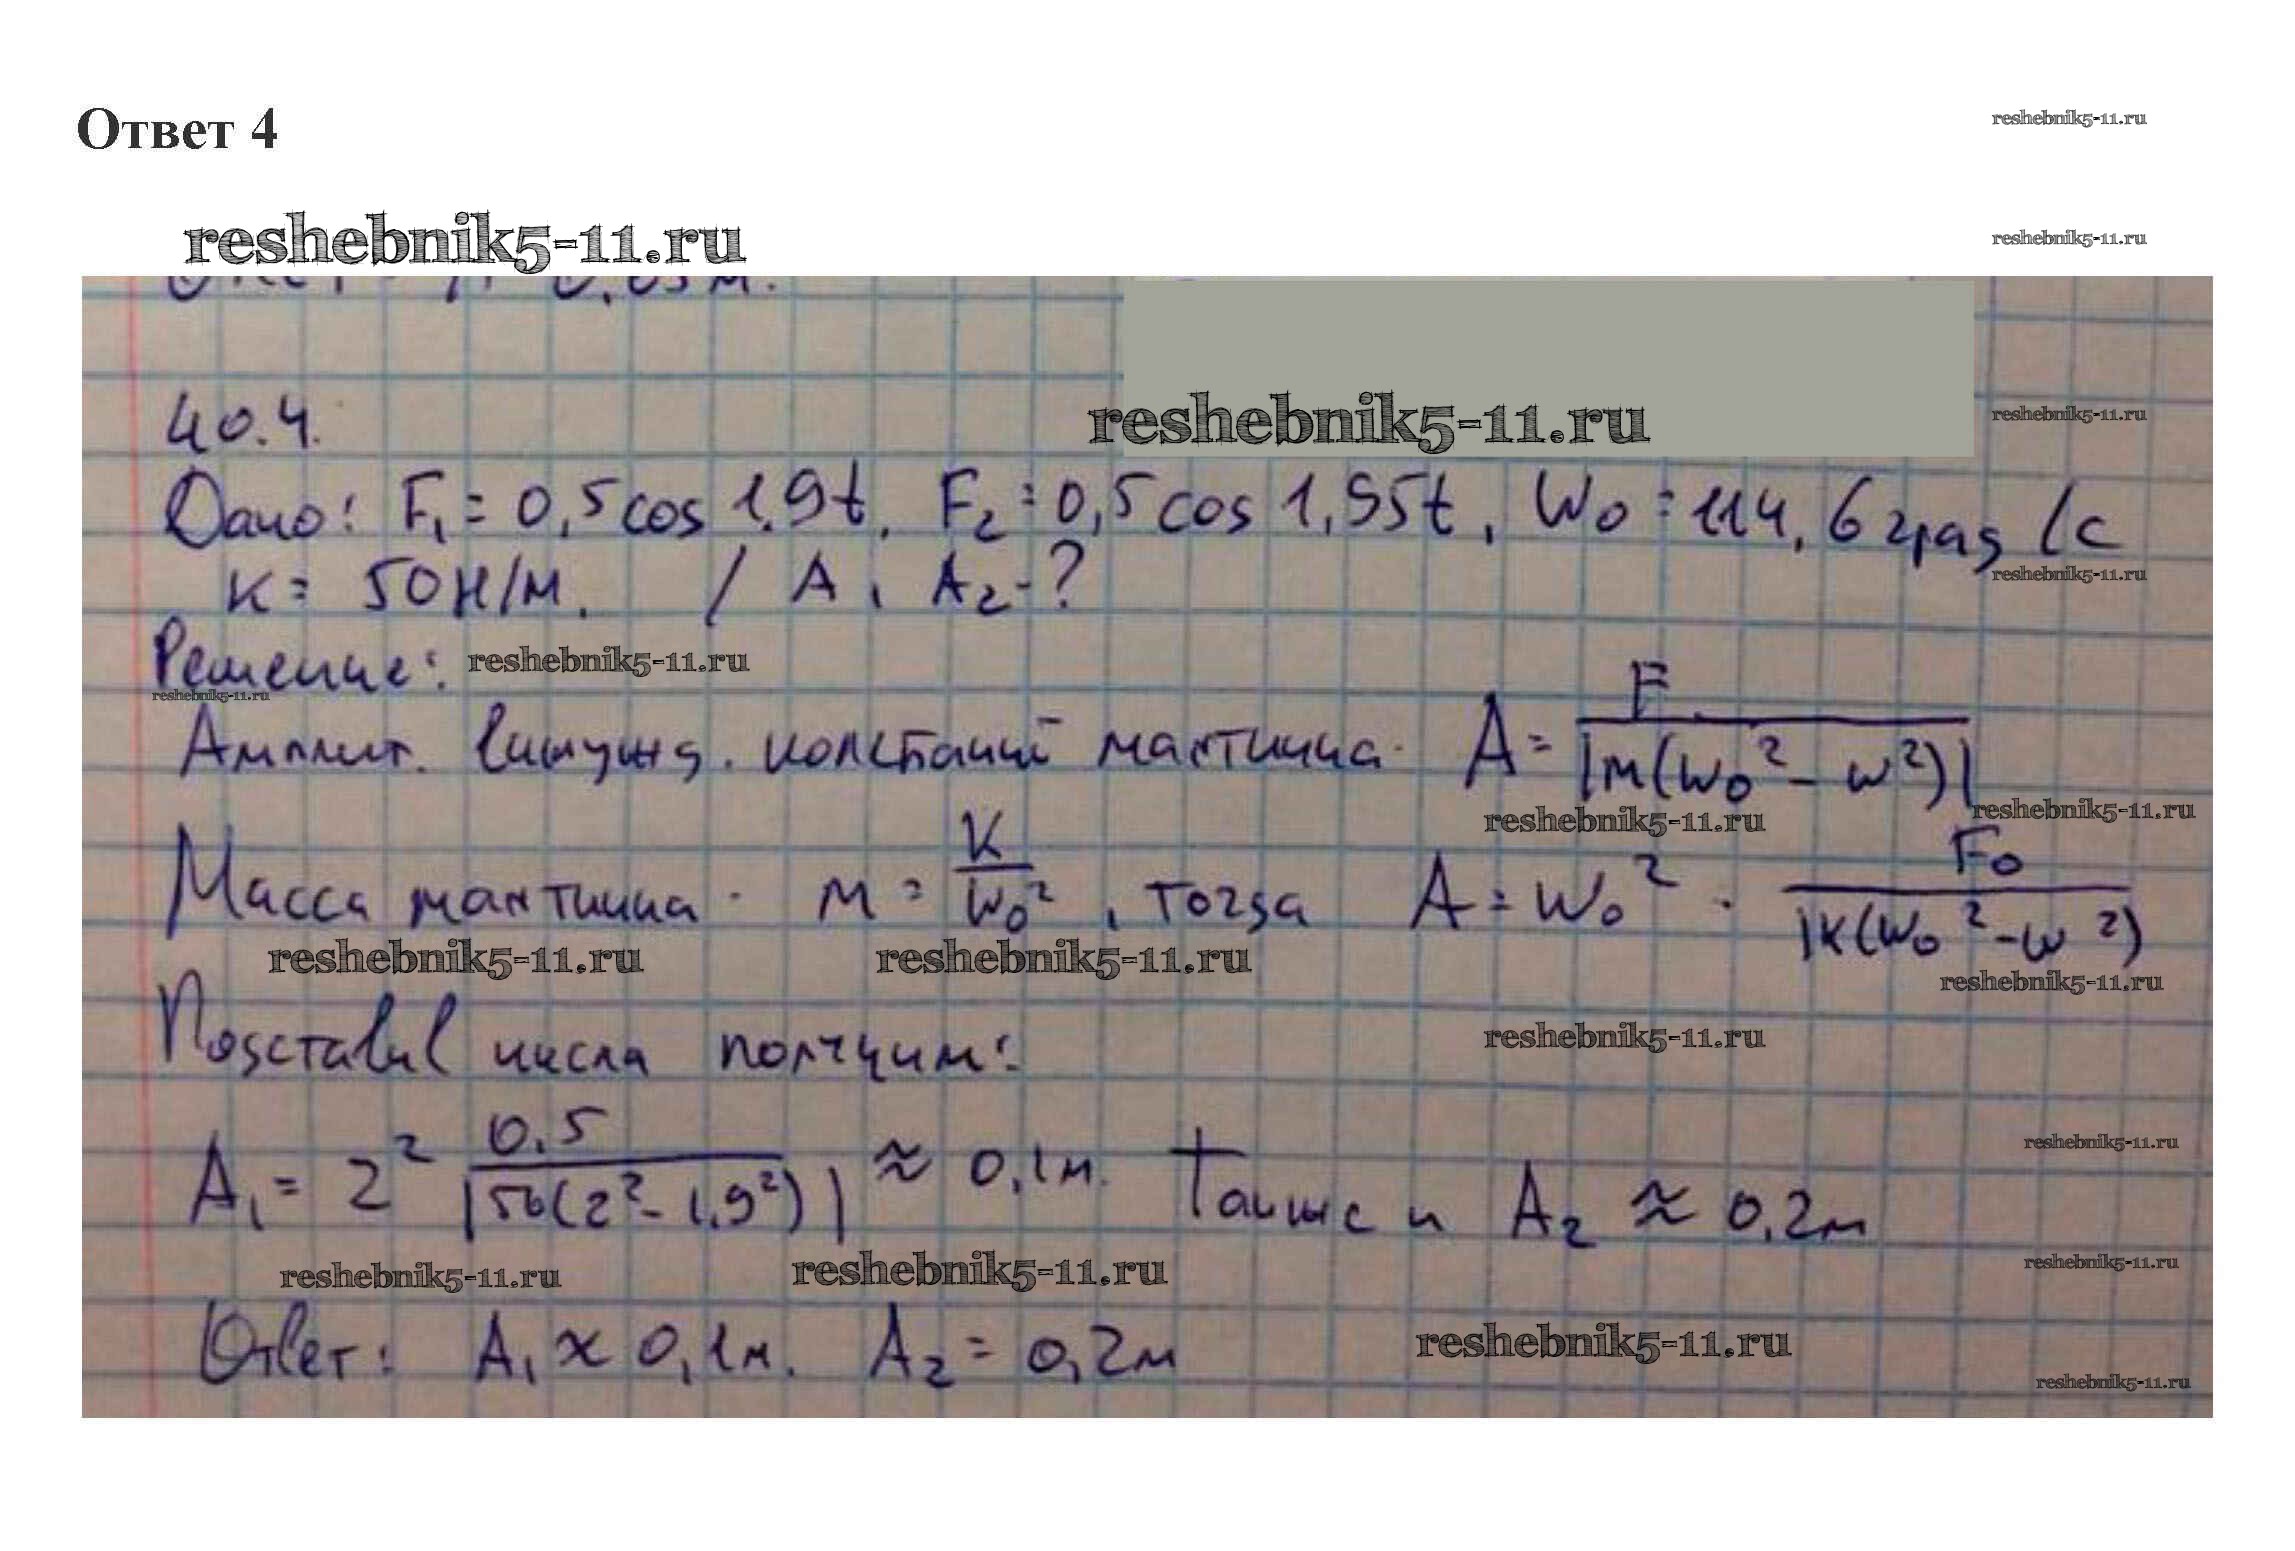 Ответ 4
reshebnik5-11.ru
reshebnik5-11.ru
reshebnik5-11.ru
40.4.
reshebnik5-11.ru
reshebnik5-11.ru
Дано: F₁ = 0,5 cos 1,9t, F₂ = 0,5 cos 1,95t, W₀ = 114,6 град/с
K = 50 Н/м. / A, A₂ - ?
reshebnik5-11.ru
Решение:
reshebnik5-11.ru
reshebnik5-11.ru
Амплит. вынужд. колебаний маятника - A = F / |м(W₀² - w²)|
reshebnik5-11.ru
reshebnik5-11.ru
Масса маятника - м = K / W₀², тогда A = W₀² · F₀ / |K(W₀² - w²)
reshebnik5-11.ru
reshebnik5-11.ru
reshebnik5-11.ru
Подставив числа получим:
reshebnik5-11.ru
reshebnik5-11.ru
A₁ = 2² 0,5 / |50(2² - 1,9²)| ≈ 0,1м. Также и A₂ ≈ 0,2м
reshebnik5-11.ru
reshebnik5-11.ru
reshebnik5-11.ru
Ответ: A₁ ≈ 0,1м. A₂ = 0,2м
reshebnik5-11.ru
reshebnik5-11.ru